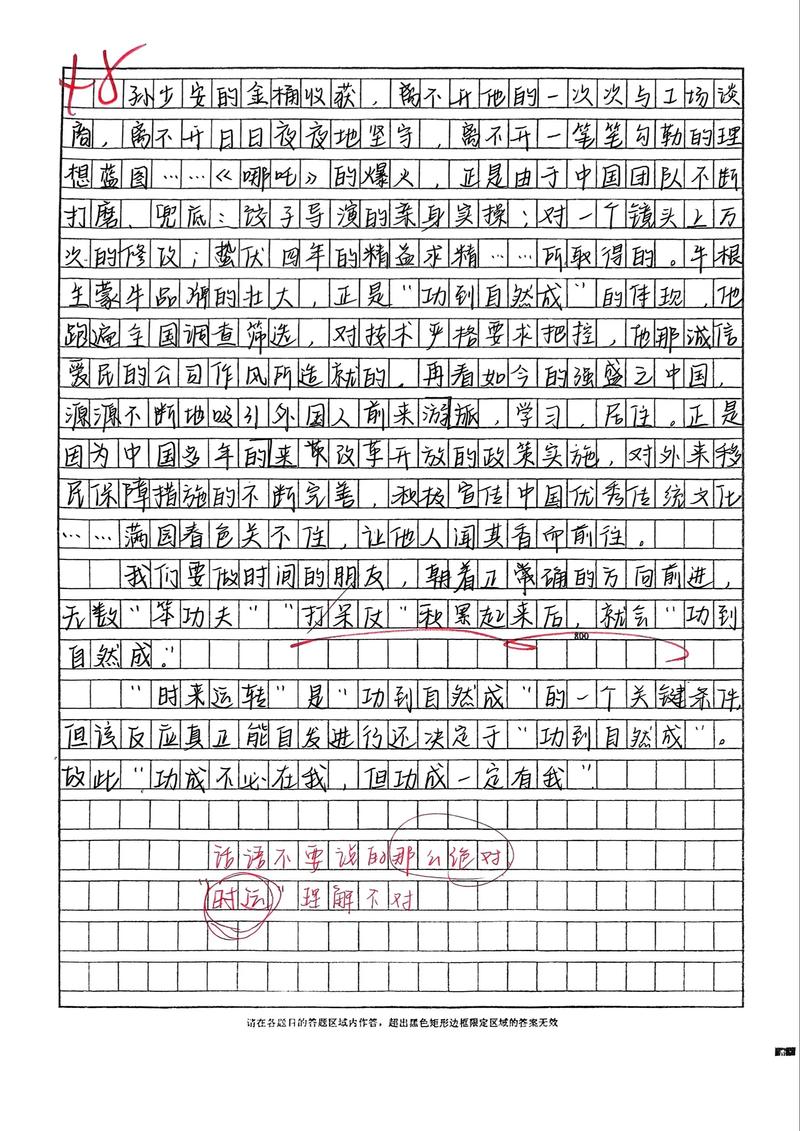 48
孙步安的金桶收获，离不开他的一次次与工场谈
商，离不开日日夜夜地坚守，离不开一笔笔勾勒的理
想蓝图……《哪吒》的爆火，正是由于中国团队不断
打磨、兜底：饺子导演的亲身实操；对一个镜头上万
次的修改；蛰伏四年的精益求精……所取得的。牛根
生蒙牛品牌的壮大，正是“功到自然成”的体现，他
跑遍全国调查筛选，对技术严格要求把控，他那诚信
爱民的公司作风所造就的。再看如今的强盛之中国，
源源不断地吸引外国人前来游旅，学习，居住。正是
因为中国多年的来革改革开放的政策实施，对外来移
民保障措施的不断完善，积极宣传中国优秀传统文化
……满园春色关不住，让他人闻其香而前往。
我们要做时间的朋友，朝着正常确的方向前进，
无数“笨功夫”“打呆仗”积累起来后，就会“功到
800
自然成。”
“时来运转”是“功到自然成”的一个关键条件，
但该反应真正能自发进行还决定于“功到自然成”。
故此“功成不必在我，但功成一定有我”
话语不要说的那么绝对
“时运”理解不对
请在各题目的答题区域内作答，超出黑色矩形边框限定区域的答案无效